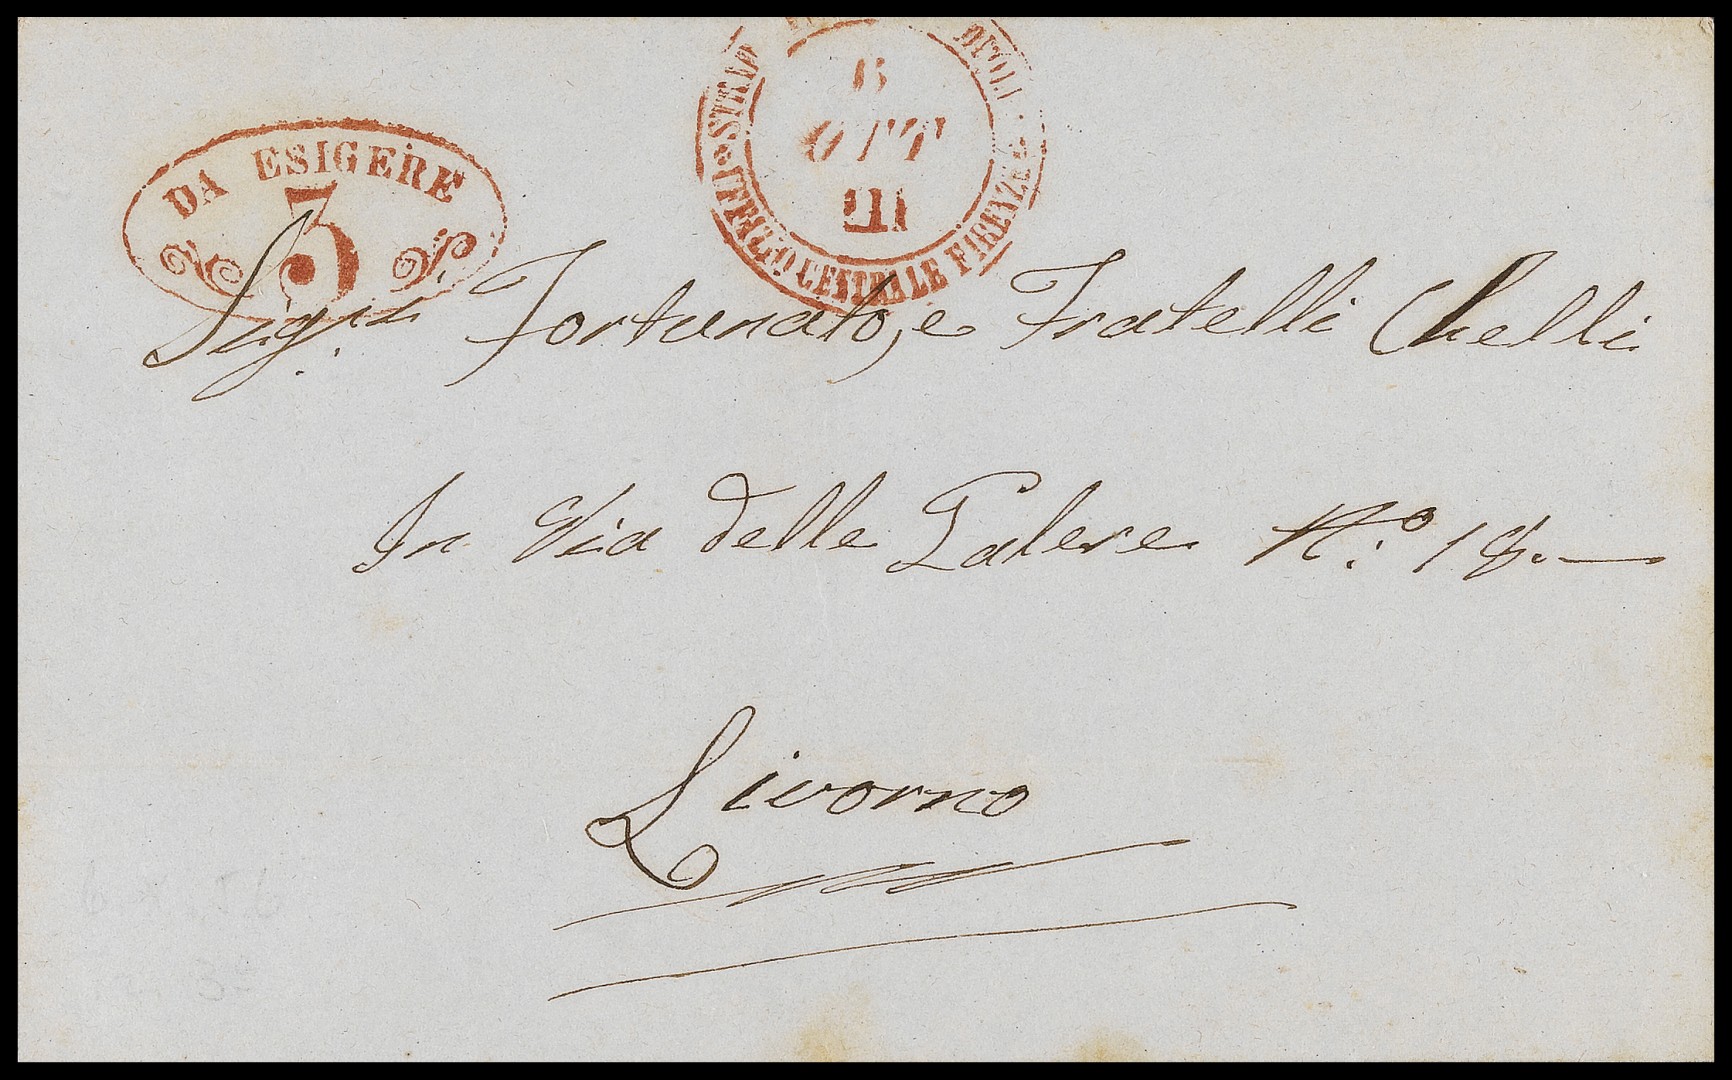 DA ESIGERE
3
6
OTT
III
UFFIZIO CENTRALE FIRENZE
Sigri Fortunato, e Fratelli Chelli
In Via delle Galere N.o 18.
Livorno